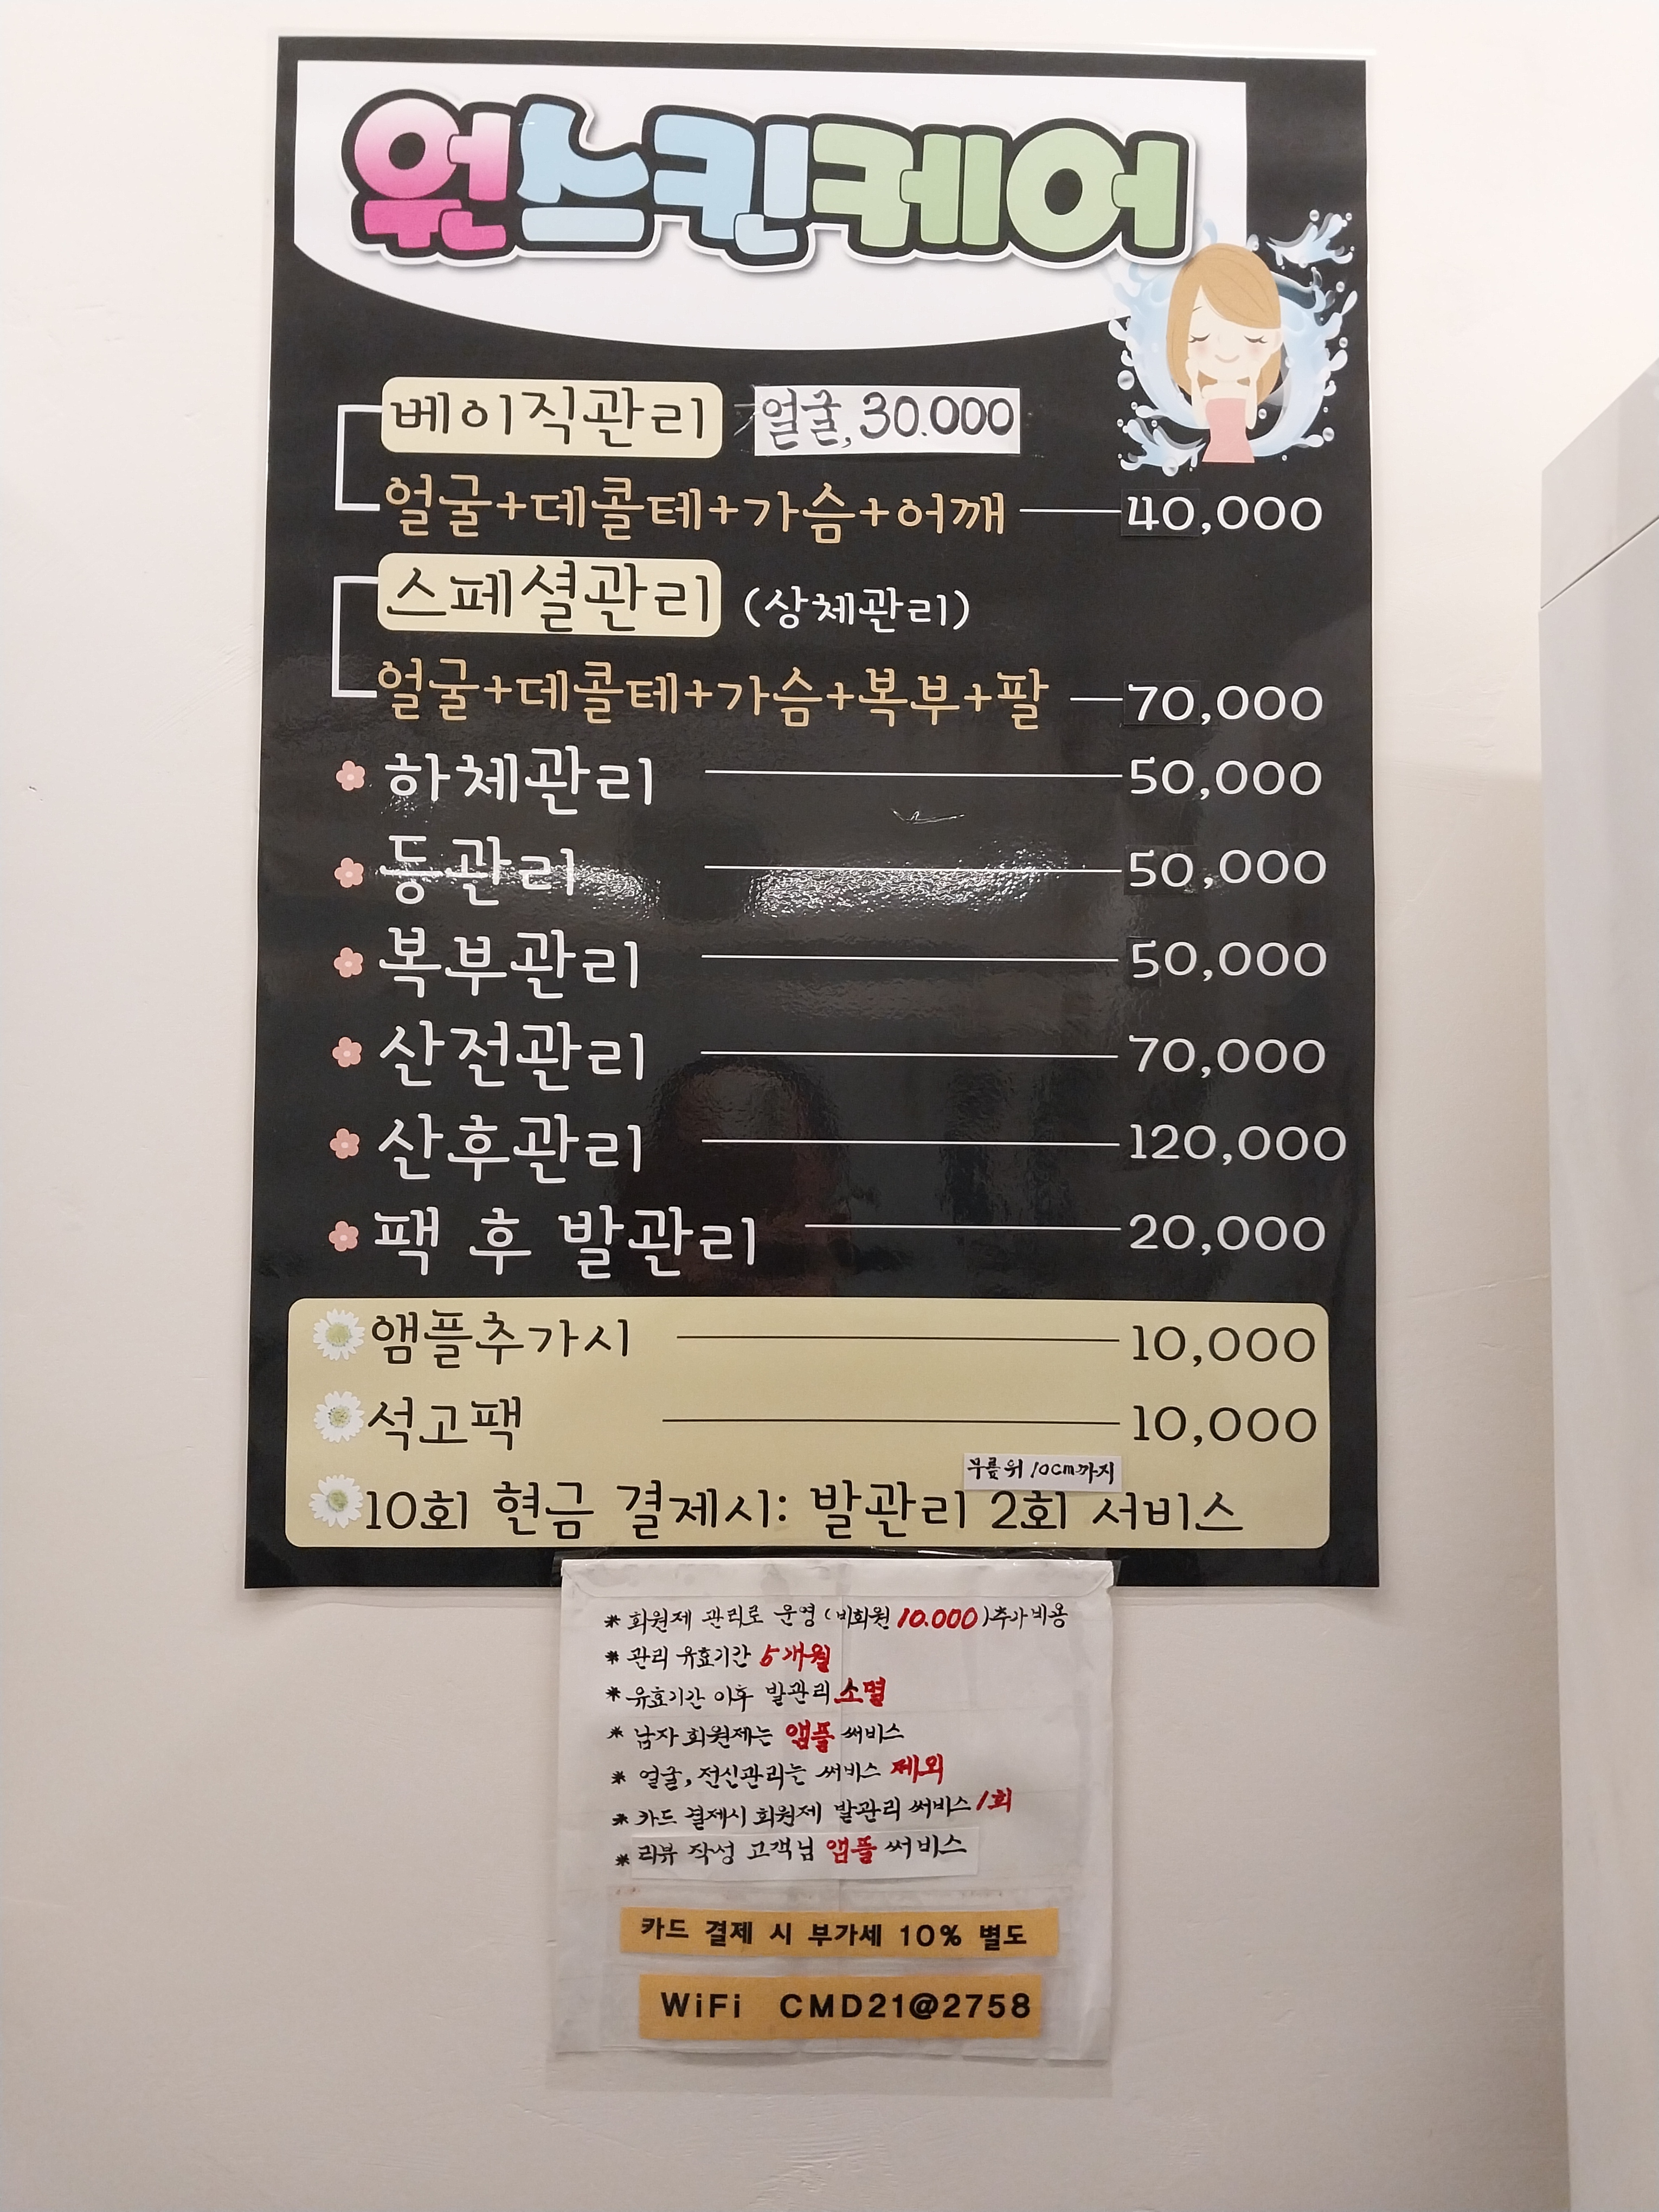 원스킨케어
베이직관리 얼굴, 30.000
얼굴+데콜테+가슴+어깨 40,000
스페셜관리 (상체관리)
얼굴+데콜테+가슴+복부+팔 70,000
하체관리 50,000
등관리 50,000
복부관리 50,000
산전관리 70,000
산후관리 120,000
팩 후 발관리 20,000
앰플추가시 10,000
석고팩 10,000
무릎위 10cm까지
10회 현금 결제시: 발관리 2회 서비스
* 회원제 관리로 운영 (비회원 10.000) 추가비용
* 관리 유효기간 5개월
* 유효기간 이후 발관리 소멸
* 남자 회원제는 앰플 써비스
* 얼굴, 전신관리는 써비스 제외
* 카드 결제시 회원제 발관리 써비스 1회
* 리뷰 작성 고객님 앰플 써비스
카드 결제 시 부가세 10% 별도
WiFi CMD21@2758